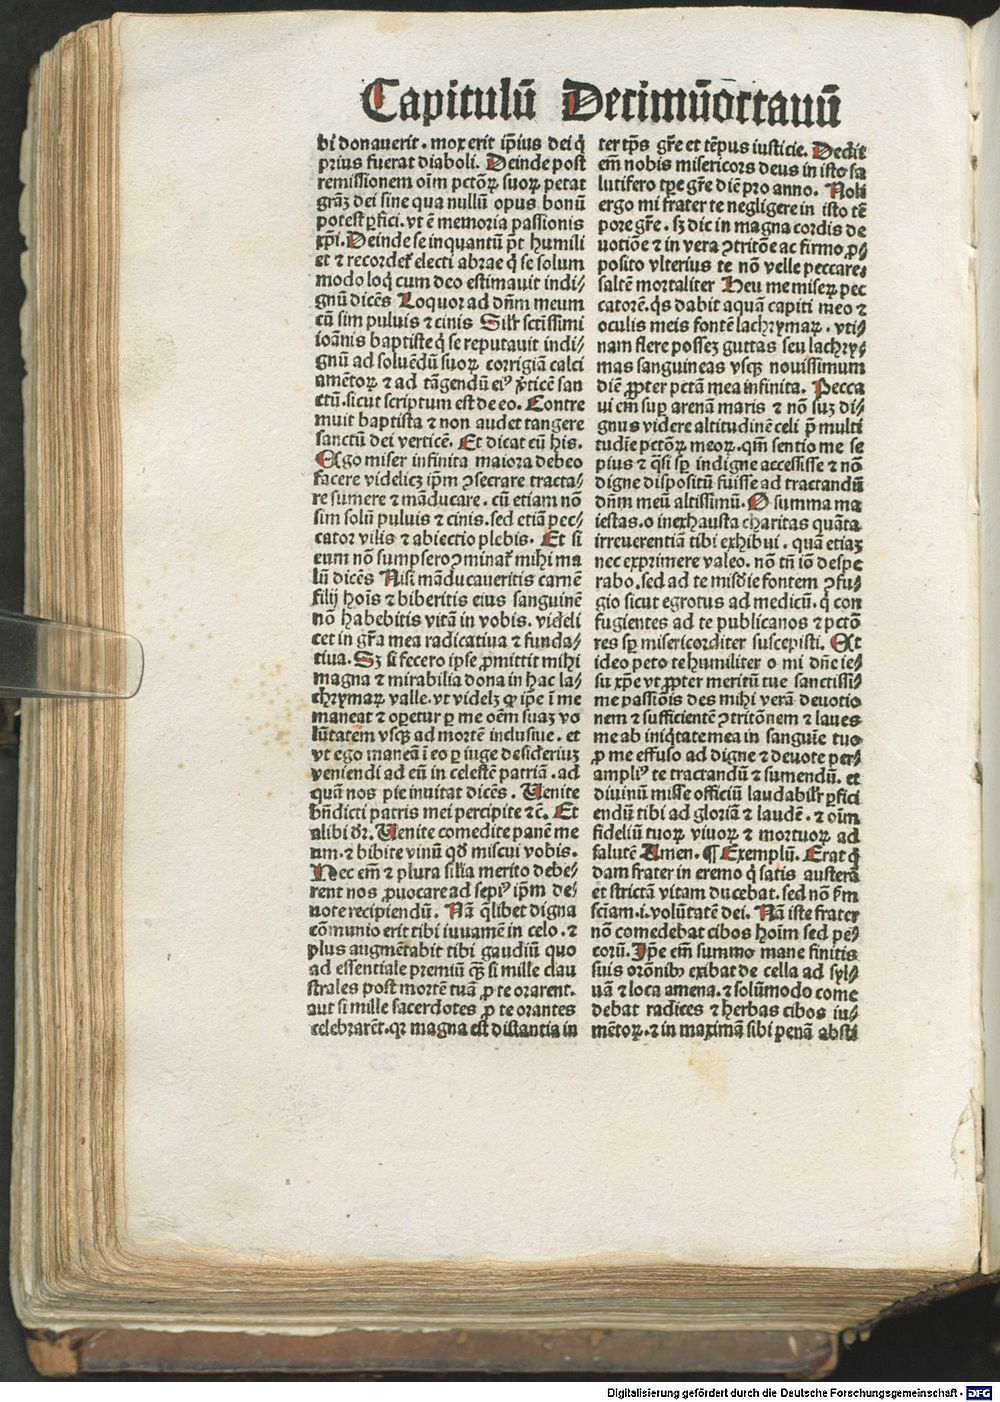 Capitulū Decimūoctauū
bi donauerit. mox erit ip̄ius dei q̇
prius fuerat diaboli. Deinde post
remissionem oīm pctōꝝ suoꝝ petat
grāꝫ dei sine qua nullū opus bonū
potest ꝑfici. vt ē memoria passionis
xp̄i. Deinde se inquantū p̄t humili
et ⁊ recordet᷑ electi abrae q̇ se solum
modo loq̇ cum deo estimauit indi⸗
gnū dicēs Loquor ad dn̄m meum
cū sim puluis ⁊ cinis Silr̄ sctīssimi
ioānis baptiste q̇ se reputauit indi⸗
gnū ad soluēdū suoꝝ corrigiā calci
amētoꝝ ⁊ ad tāgendū eiꝰ v̓ticē san
ctū. sicut scriptum est de eo. Contre
muit baptista ⁊ non audet tangere
sanctū dei verticē. Et dicat cū his.
Ego miser infinita maiora debeo
facere videlicꝫ ip̄m ꝯsecrare tracta⸗
re sumere ⁊ māducare. cū etiam nō
sim solū puluis ⁊ cinis. sed etiā pec⸗
cator vilis ⁊ abiectio plebis. Et si
eum nō sumpsero ꝯminat᷑ mihi ma
lū dicēs Nisi māducaueritis carnē
filij hoīs ⁊ biberitis eius sanguinē
nō habebitis vitā in vobis. videli
cet in gr̄a mea radicatiua ⁊ funda⸗
tiua. Sꝫ si fecero ipse ꝓmittit mihi
magna ⁊ mirabilia dona in hac la⸗
chrymaꝝ valle. vt videlꝫ ꝙ ip̄e ī me
maneat ⁊ oꝑetur ꝑ me oēm suaꝫ vo
lūtatem vsqꝫ ad mortē inclusiue. et
vt ego maneā ī eo ꝑ iuge desideriuꝫ
veniendi ad eū in celestē patriā. ad
quā nos pie inuitat dicēs. Uenite
bn̄dicti patris mei percipite ⁊c̄. Et
alibi dr̄. Uenite comedite panē me
um. ⁊ bibite vinū qd̄ miscui vobis.
Nec em̄ ⁊ plura silīa merito debe⸗
rent nos ꝓuocare ad sepiꝰ ip̄m de⸗
uote recipiendū. Nā q̄libet digna
cōmunio erit tibi iuuamē in celo. ⁊
plus augmētabit tibi gaudiū quo
ad essentiale premiū qꝫ̄ si mille clau
strales post mortē tuā ꝓ te orarent.
aut si mille sacerdotes ꝓ te orantes
celebrarēt. qꝛ magna est distantia in
ter tp̄s gr̄e et tēpus iusticie. Dedit
em̄ nobis misericors deus in isto sa
lutifero tp̄e gr̄e diē pro anno. Noli
ergo mi frater te negligere in isto tē
pore gr̄e. sꝫ dic in magna cordis de
uotiōe ⁊ in vera ꝯtritōe ac firmo ꝓ⸗
posito vlterius te nō velle peccare⸗
saltē mortaliter Heu me miseꝝ pec
catorē. q̇s dabit aquā capiti meo ⁊
oculis meis fontē lachrymaꝝ. vti⸗
nam flere posseꝫ guttas seu lachry⸗
mas sanguineas vsqꝫ nouissimum
diē ꝓpter pctā mea infinita. Pecca
ui em̄ suꝑ arenā maris ⁊ nō suꝫ di⸗
gnus videre altitudinē celi p̄ multi
tudīe pctōꝝ meoꝝ. qm̄ sentio me se
pius ⁊ q̄si sꝑ indigne accessisse ⁊ nō
digne dispositū fuisse ad tractandū
dn̄m meū altissimū. O summa ma
iestas. o inexhausta charitas quāta
irreuerentiā tibi exhibui. quā etiaꝫ
nec exprimere valeo. non tn̄ iō despe
rabo. sed ad te misd̄ie fontem ꝯfu⸗
gio sicut egrotus ad medicū. q̇ con
fugientes ad te publicanos ⁊ pctō
res sꝑ misericorditer suscepisti. Et
ideo peto te humiliter o mi dn̄e ie⸗
su xp̄e vt ꝓpter meritū tue sanctissi⸗
me passiōis des mihi verā deuotio
nem ⁊ sufficientē ꝯtritōnem ⁊ laues
me ab iniq̇tate mea in sanguīe tuo
ꝓ me effuso ad digne ⁊ deuote per⸗
ampliꝰ te tractandū ⁊ sumendū. et
diuinū misse officiū laudabilr̄ ꝑfici
endū tibi ad gloriā ⁊ laudē. ⁊ oīm
fideliū tuoꝝ viuoꝝ ⁊ mortuoꝝ ad
salutē Amen. ¶ Exemplū. Erat q̇
dam frater in eremo q̇ satis austerā
et strictā vitam ducebat. sed nō ẜm
sciām. i. volūtatē dei. Nā iste frater
nō comedebat cibos hoīm sed pe⸗
corū. Ip̄e em̄ summo mane finitis
suis orōnibꝫ exibat de cella ad syl⸗
uā ⁊ loca amena. ⁊ solūmodo come
debat radices ⁊ herbas cibos iu⸗
mētoꝝ. ⁊ in maximā sibi penā absti
Digitalisierung gefördert durch die Deutsche Forschungsgemeinschaft - DFG